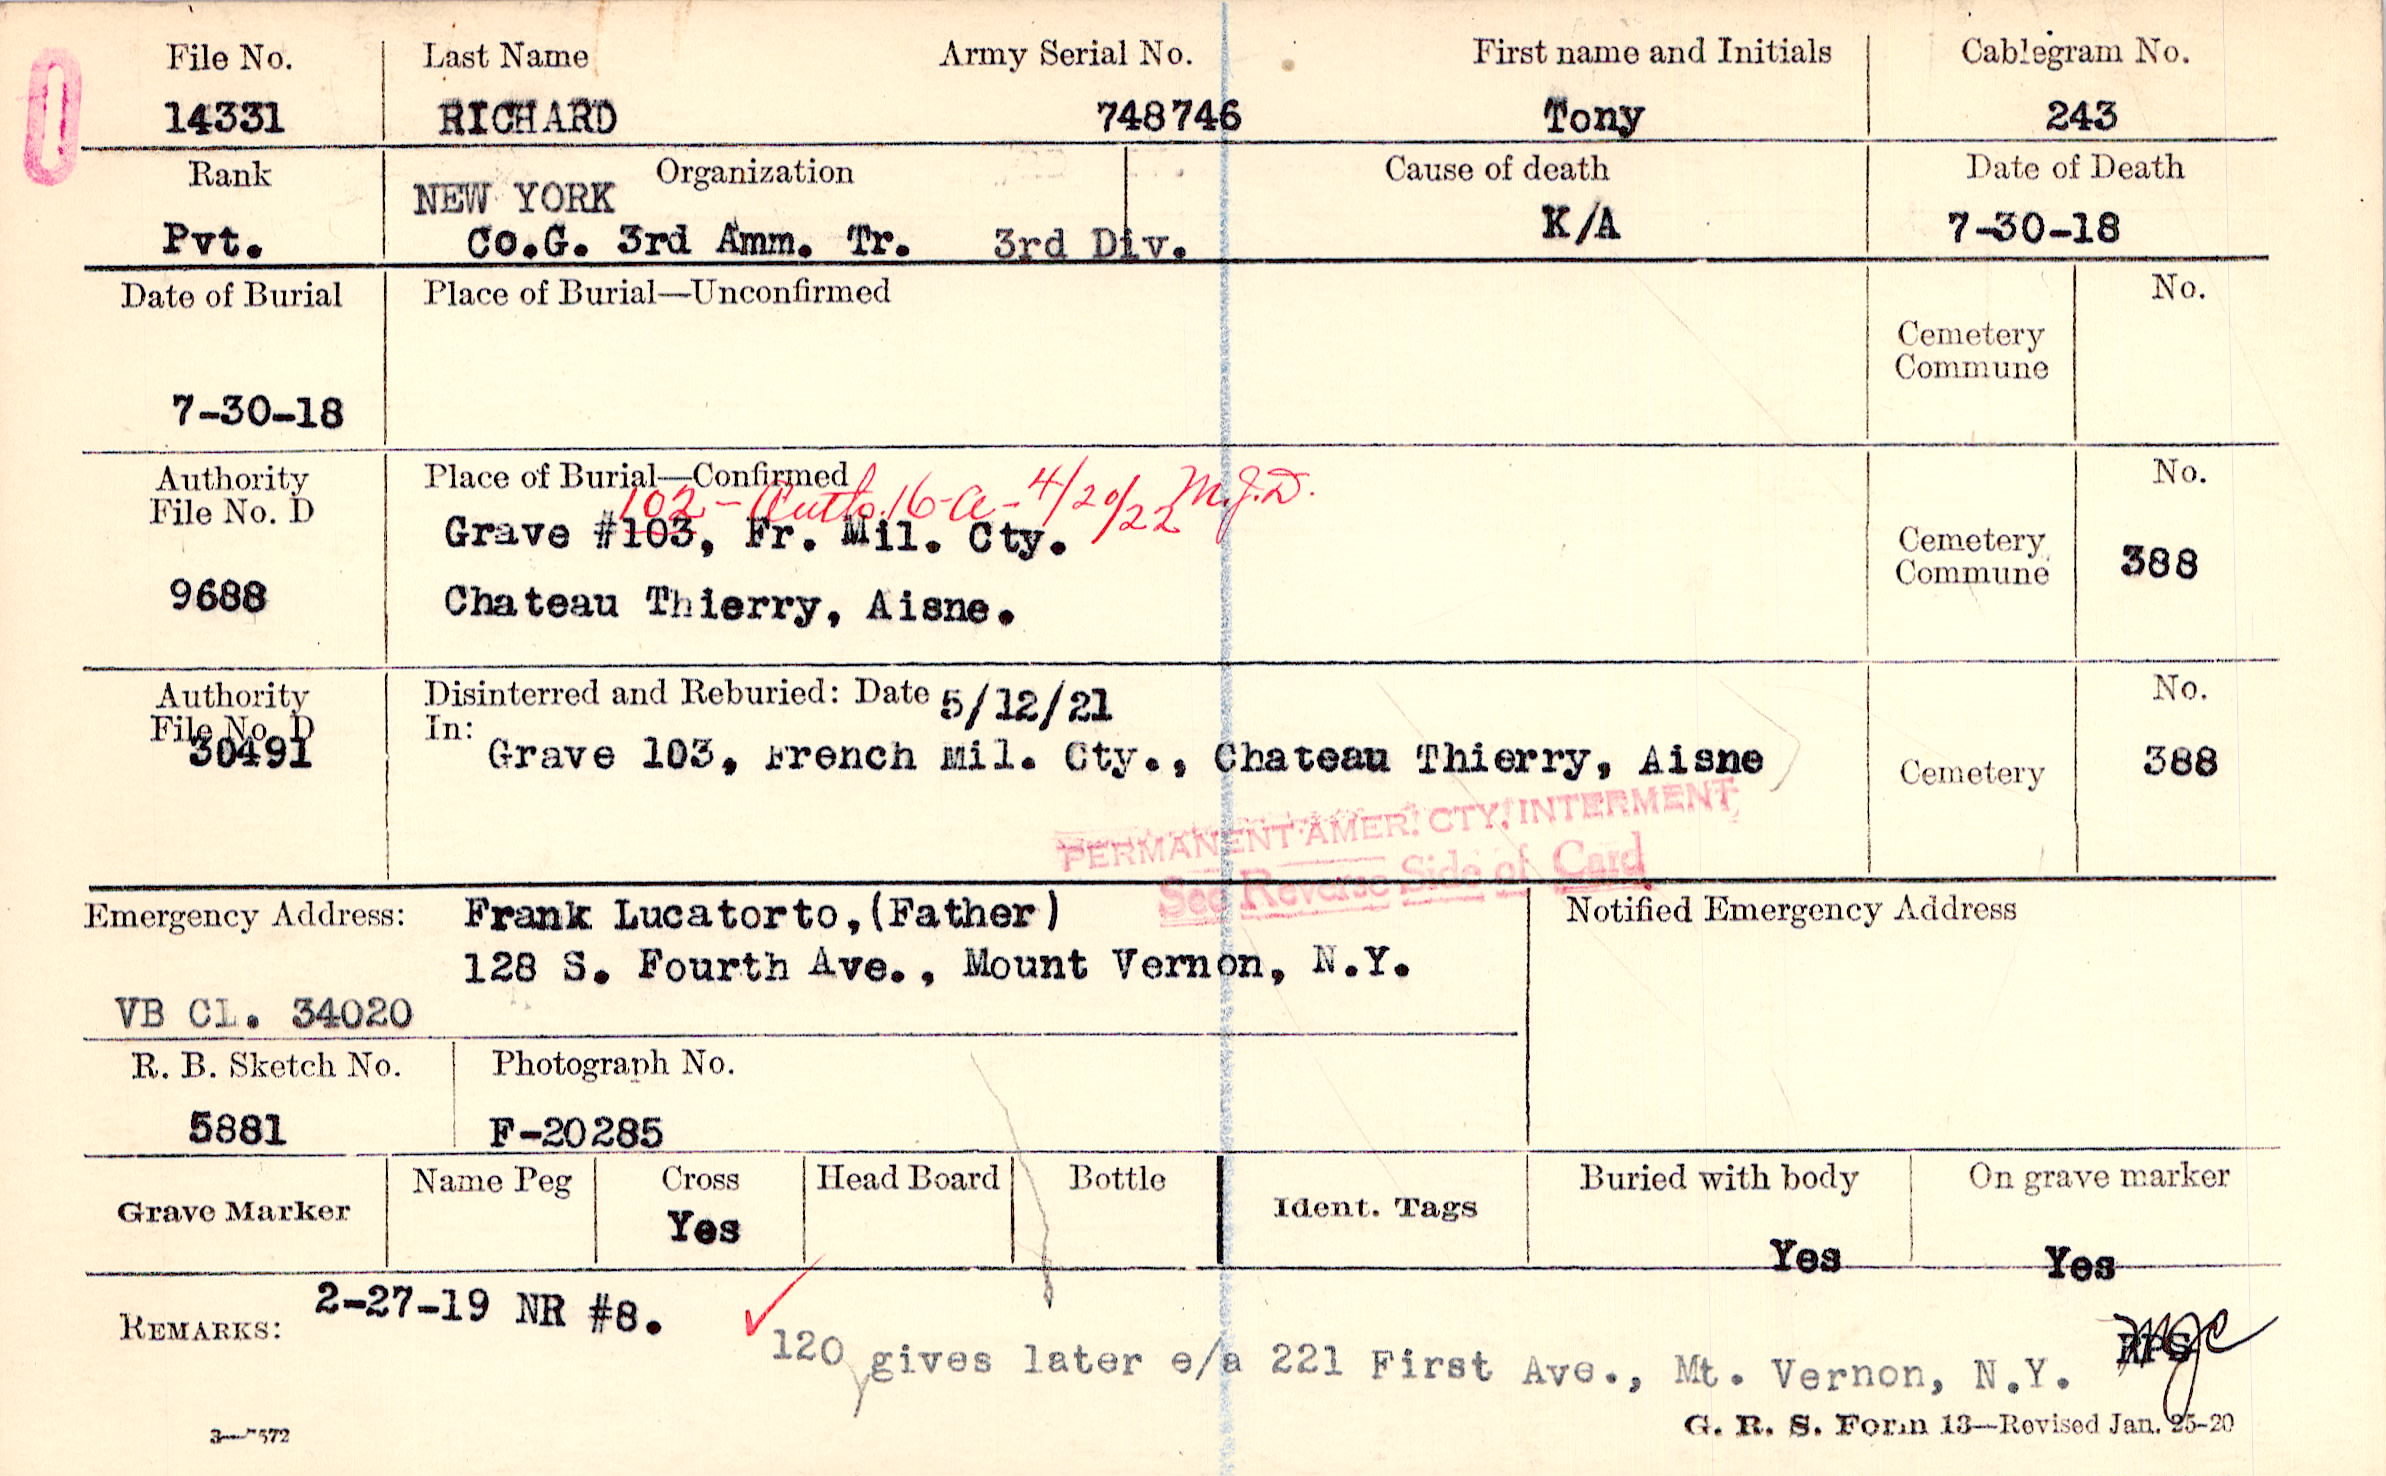 File No. Last Name Army Serial No. First name and Initials Cablegram No.
14331 RICHARD 748746 Tony 243
Rank Organization Cause of death Date of Death
NEW YORK
Pvt. Co.G. 3rd Amm. Tr. 3rd Div. K/A 7-30-18
Date of Burial Place of Burial—Unconfirmed No.
Cemetery
Commune
7-30-18
Authority Place of Burial—Confirmed No.
File No. D
102 - Auth. 16-A - 4/20/22 M.J.D.
Grave #103, Fr. Mil. Cty.
Cemetery
Commune 388
9688 Chateau Thierry, Aisne.
Authority Disinterred and Reburied: Date 5/12/21 No.
File No. D In:
30491 Grave 103, French Mil. Cty., Chateau Thierry, Aisne Cemetery 388
PERMANENT AMER. CTY. INTERMENT
See Reverse Side of Card
Emergency Address: Frank Lucatorto,(Father) Notified Emergency Address
128 S. Fourth Ave., Mount Vernon, N.Y.
VB CL. 34020
R. B. Sketch No. Photograph No.
5881 F-20285
Grave Marker Name Peg Cross Head Board Bottle Ident. Tags Buried with body On grave marker
Yes Yes Yes
REMARKS: 2-27-19 NR #8.
120 gives later e/a 221 First Ave., Mt. Vernon, N.Y.
RPS MJC
3—7572 G. R. S. Form 13—Revised Jan. 25-20